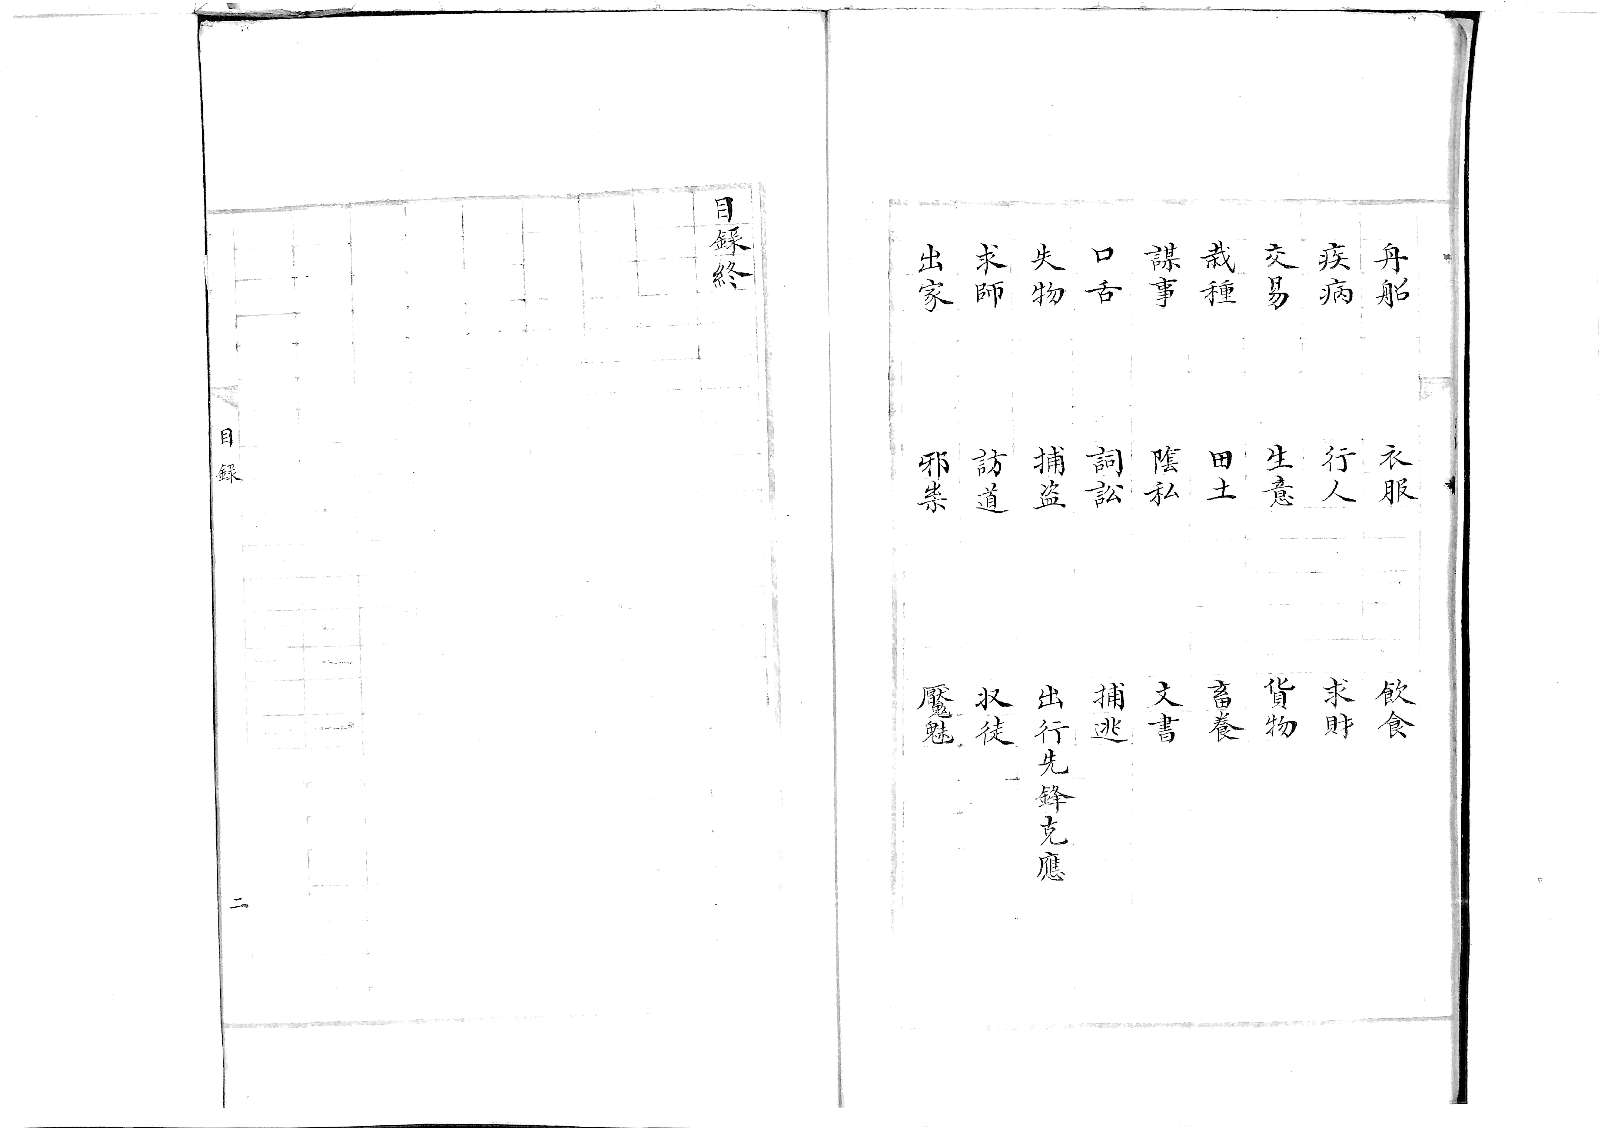 舟船 衣服 飲食
疾病 行人 求財
交易 生意 貨物
栽種 田土 畜養
謀事 陰私 文書
口舌 詞訟 捕逃
失物 捕盗 出行先鋒克應
求師 訪道 収徒
出家 邪祟 魘魅
目録終
目録
二